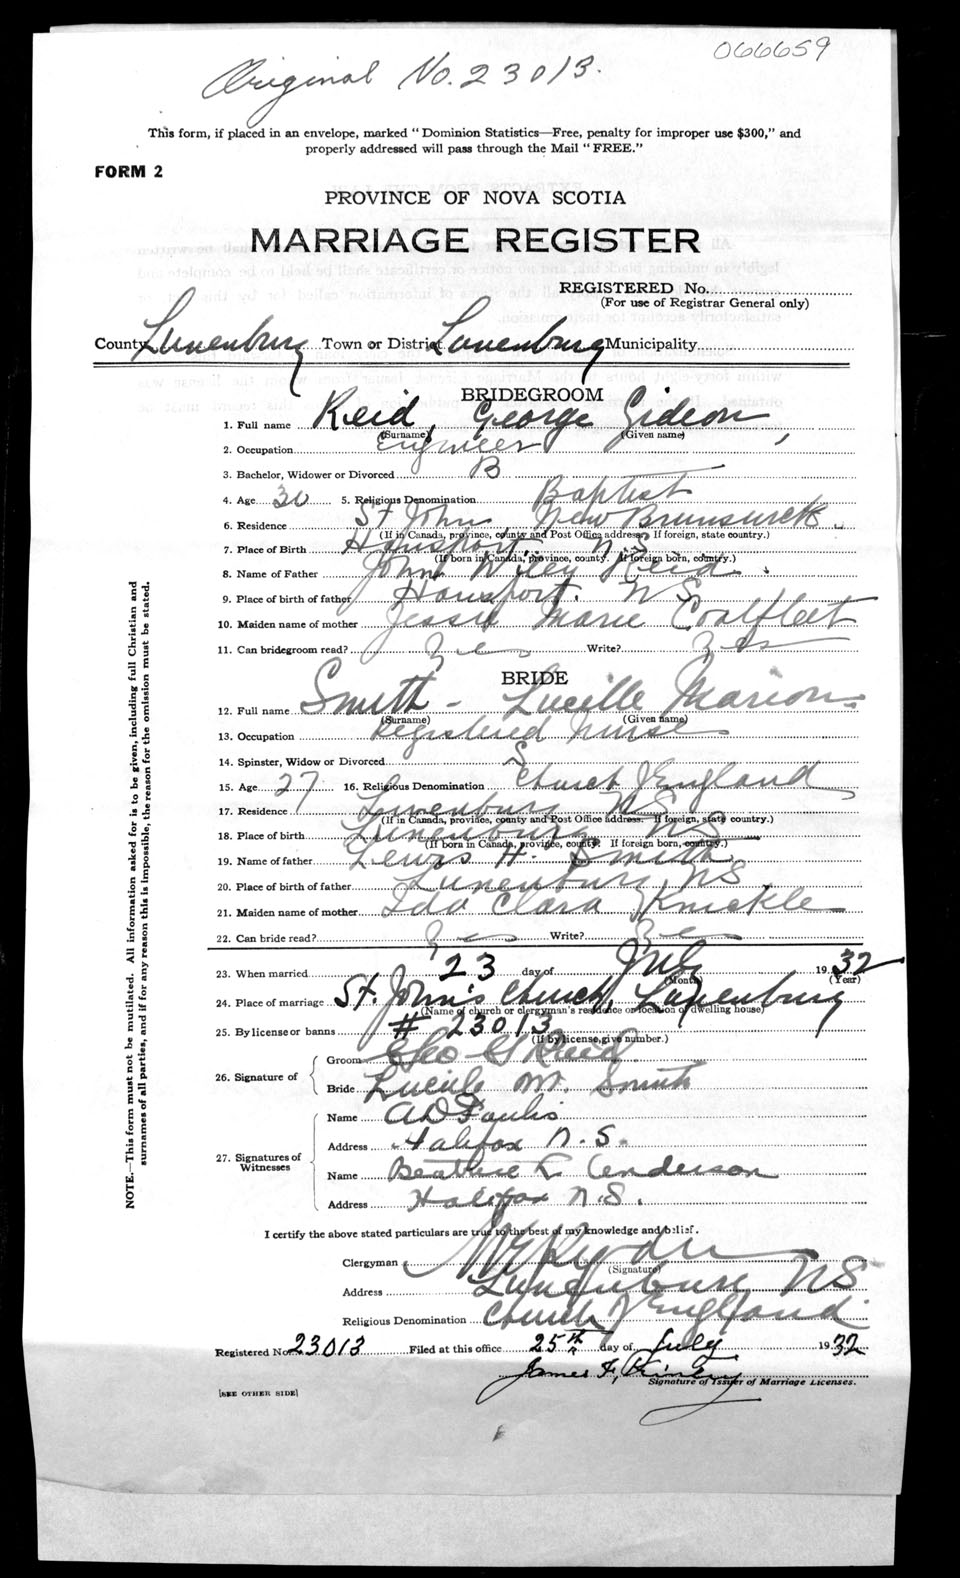 066659
Original No. 23013.
This form, if placed in an envelope, marked "Dominion Statistics—Free, penalty for improper use $300," and
properly addressed will pass through the Mail "FREE."
FORM 2
PROVINCE OF NOVA SCOTIA
MARRIAGE REGISTER
REGISTERED No.
(For use of Registrar General only)
County Lunenburg Town or District Lunenburg Municipality
BRIDEGROOM
1. Full name Reid, George Gideon,
(Surname) (Given name)
2. Occupation Engineer
3. Bachelor, Widower or Divorced B
4. Age 30 5. Religious Denomination Baptist
6. Residence St John, New Brunswick
(If in Canada, province, county and Post Office address. If foreign, state country.)
7. Place of Birth Hansport, N.S.
(If born in Canada, province, county. If foreign born, country.)
8. Name of Father John Wiley Reid
9. Place of birth of father Hansport. NS
10. Maiden name of mother Jessie Marie Coalfleet
11. Can bridegroom read? Yes Write? Yes
BRIDE
12. Full name Smith - Lucille Marion.
(Surname) (Given name)
13. Occupation Registered Nurse
14. Spinster, Widow or Divorced S
15. Age 27 16. Religious Denomination Church of England
17. Residence Lunenburg NS
(If in Canada, province, county and Post Office address. If foreign, state country.)
18. Place of birth Lunenburg NS
(If born in Canada, province, county. If foreign born, country.)
19. Name of father Lewis H. Smith
20. Place of birth of father Lunenburg, NS
21. Maiden name of mother Ida Clara Knickle
22. Can bride read? Yes Write? Yes
23. When married 23 day of July 1932
(Month) (Year)
24. Place of marriage St. John's Church, Lunenburg
(Name of church or clergyman's residence or location of dwelling house)
25. By license or banns # 23013
(If by license, give number.)
26. Signature of Groom Geo G Reid
Bride Lucille M. Smith
27. Signatures of Witnesses Name A D Faulis
Address Halifax N.S.
Name Beatrice L Anderson
Address Halifax N.S.
I certify the above stated particulars are true to the best of my knowledge and belief.
Clergyman
(Signature)
Address Lunenburg NS
Religious Denomination Church of England
Registered No. 23013 Filed at this office 25th day of July 1932
James F. Kinley
Signature of Issuer of Marriage Licenses.
[SEE OTHER SIDE]
NOTE.—This form must not be mutilated. All information asked for is to be given, including full Christian and
surnames of all parties, and if for any reason this is impossible, the reason for the omission must be stated.